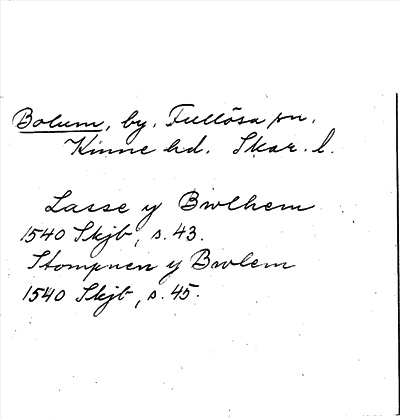 Bolum, by. Fullösa sn.
Kinne hd. Skar. l.
Lasse y Bwlhem
1540 Skjb, s. 43.
Stompnen y Bwlem
1540 Skjb, s. 45.